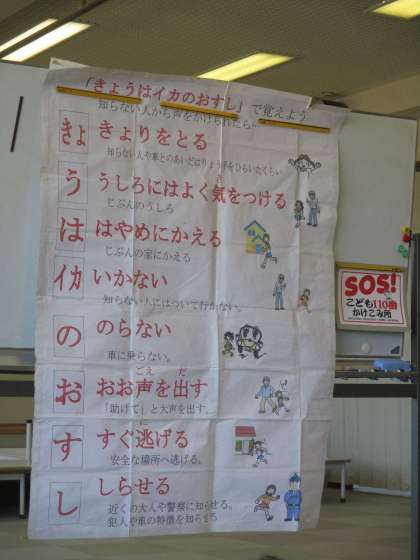 「きょうはイカのおすし」で覚えよう
知らない人から声をかけられたら…
きょ きょりをとる
知らない人や車とのあいだはりょう手をひらいたくらい
う うしろにはよく気をつける
じぶんのうしろ
は はやめにかえる
じぶんの家にかえる
イカ いかない
知らない人にはついて行かない。
の のらない
車に乗らない。
お おお声を出す
「助けて」と大声を出す。
す すぐ逃げる
安全な場所へ逃げる。
し しらせる
近くの大人や警察に知らせる。
犯人や車の特徴を知らせる
SOS!
こども110番
かけこみ所